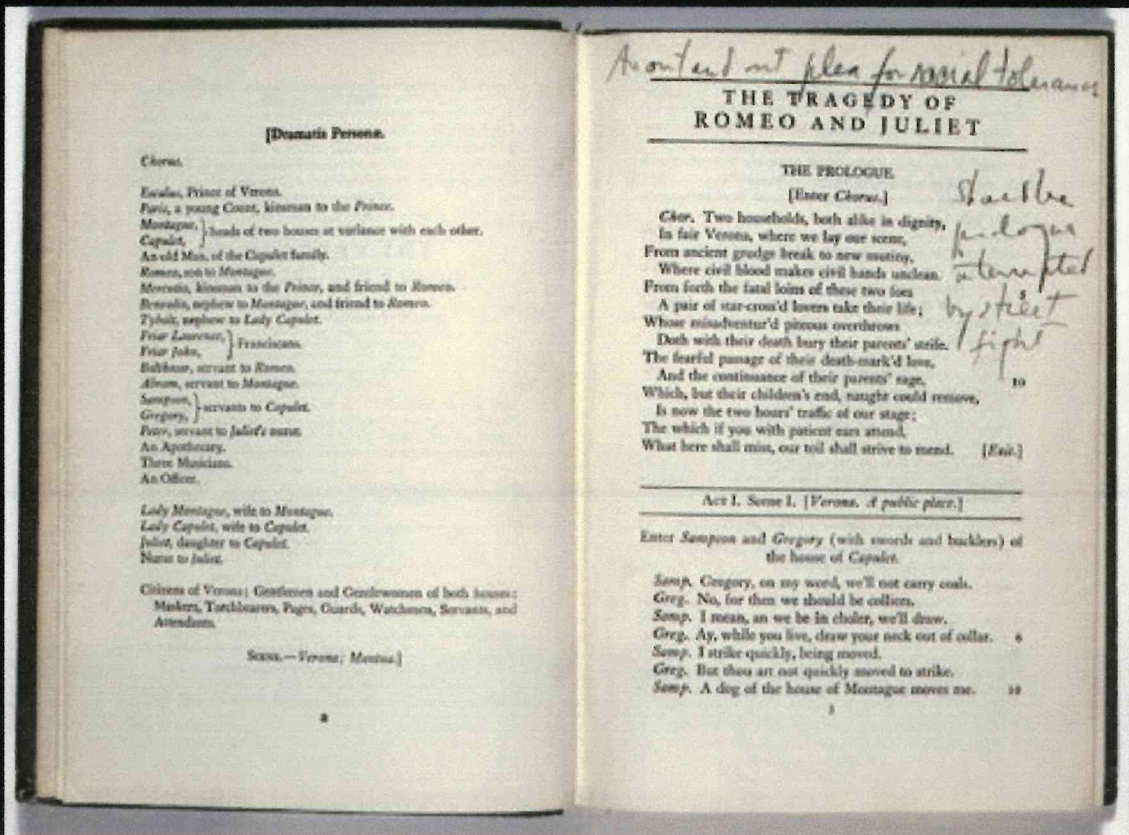 [Dramatis Personæ.
Chorus.
Escalus, Prince of Verona.
Paris, a young Count, kinsman to the Prince.
Montague,
Capulet,
} heads of two houses at variance with each other.
An old Man, of the Capulet family.
Romeo, son to Montague.
Mercutio, kinsman to the Prince, and friend to Romeo.
Benvolio, nephew to Montague, and friend to Romeo.
Tybalt, nephew to Lady Capulet.
Friar Laurence,
Friar John,
} Franciscans.
Balthasar, servant to Romeo.
Abram, servant to Montague.
Sampson,
Gregory,
} servants to Capulet.
Peter, servant to Juliet's nurse.
An Apothecary.
Three Musicians.
An Officer.
Lady Montague, wife to Montague.
Lady Capulet, wife to Capulet.
Juliet, daughter to Capulet.
Nurse to Juliet.
Citizens of Verona; Gentlemen and Gentlewomen of both houses;
Maskers, Torchbearers, Pages, Guards, Watchmen, Servants, and
Attendants.
Scene.—Verona; Mantua.]
2
An out and out plea for racial tolerance
THE TRAGEDY OF
ROMEO AND JULIET
THE PROLOGUE
[Enter Chorus.]
Chor. Two households, both alike in dignity,
In fair Verona, where we lay our scene,
From ancient grudge break to new mutiny,
Where civil blood makes civil hands unclean.
From forth the fatal loins of these two foes 5
A pair of star-cross'd lovers take their life;
Whose misadventur'd piteous overthrows
Doth with their death bury their parents' strife.
The fearful passage of their death-mark'd love,
And the continuance of their parents' rage, 10
Which, but their children's end, naught could remove,
Is now the two hours' traffic of our stage;
The which if you with patient ears attend,
What here shall miss, our toil shall strive to mend. [Exit.]
prologue
interrupted
by street
fight
Act I. Scene I. [Verona. A public place.]
Enter Sampson and Gregory (with swords and bucklers) of
the house of Capulet.
Samp. Gregory, on my word, we'll not carry coals.
Greg. No, for then we should be colliers.
Samp. I mean, an we be in choler, we'll draw.
Greg. Ay, while you live, draw your neck out of collar.
Samp. I strike quickly, being moved.
Greg. But thou art not quickly moved to strike.
Samp. A dog of the house of Montague moves me. 10
3